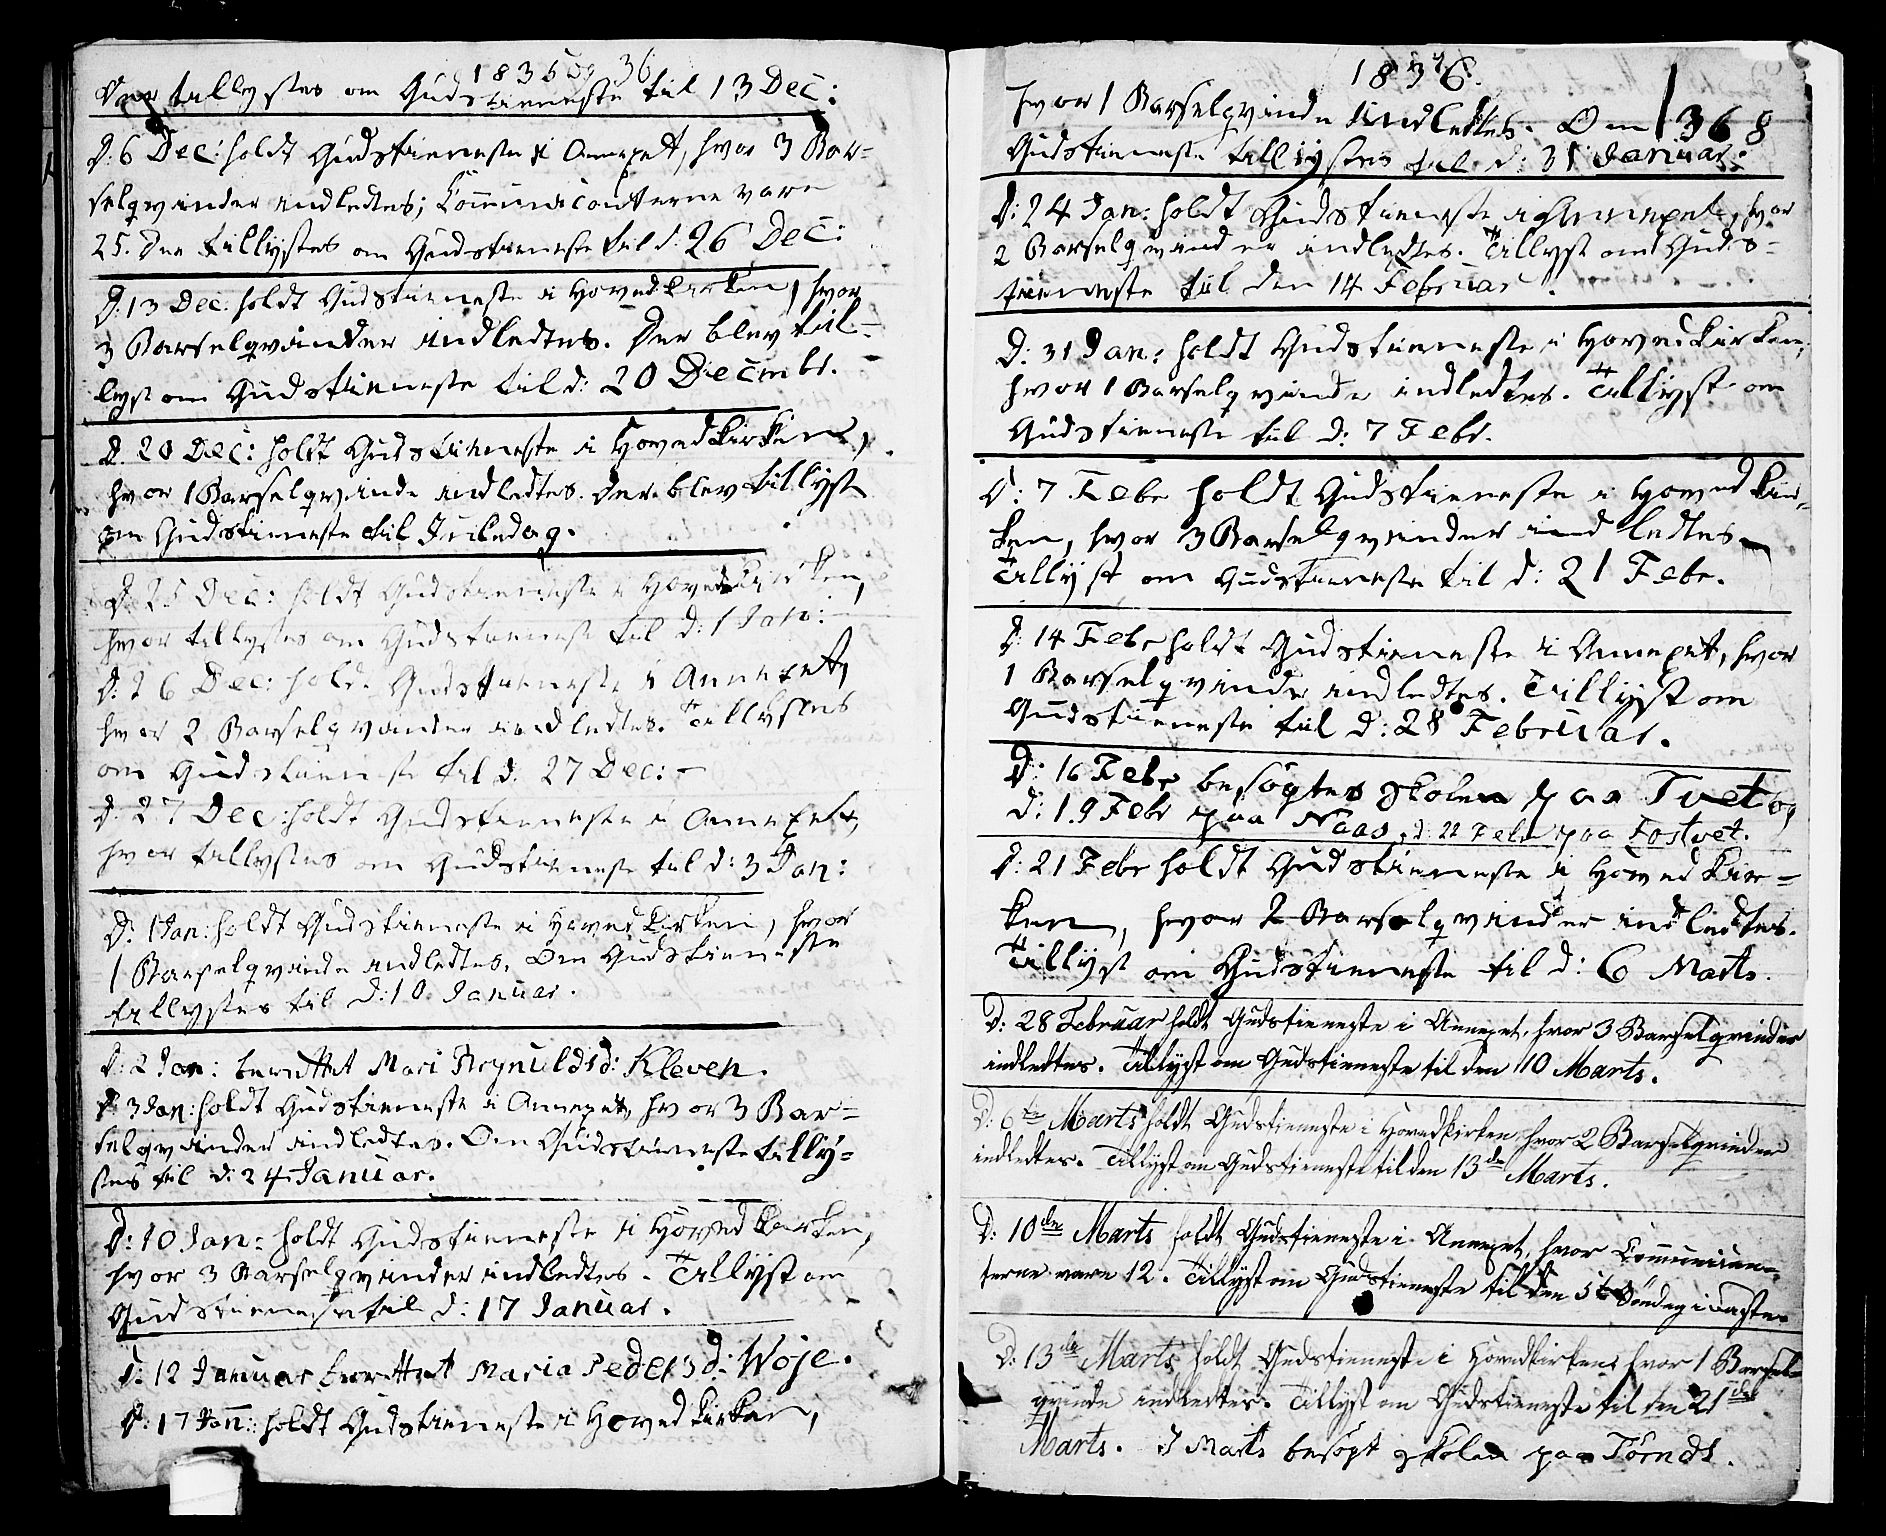 1835 og 36
Der tillystes om Gudstieneste til 13 Dec:
D: 6 Dec: holdt Gudstieneste i Annexet, hvor 3 Bar-
selqvinder indledtes; Communicanterne vare
25. Der tillystes om Gudstieneste til d: 26 Dec:
D: 13 Dec: holdt Gudstieneste i Hovedkirken, hvor
3 Barselqvinder indledtes. Der blev til-
lyst om Gudstieneste til d: 20 Decembr.
D. 20 Dec: holdt Gudstieneste i Hovedkirken,
hvor 1 Barselqvinde indledtes. Der blev tillyst
om Gudstieneste til Juledag.
D: 25 Dec: holdt Gudstieneste i Hovedkirken,
hvor tillystes om Gudstieneste til d: 1 Jan:
D: 26 Dec: holdt Gudstieneste i Annexet,
hvor 2 Barselqvinder indledtes. Tillystes
om Gudstieneste til d. 27 Dec:
D: 27 Dec: holdt Gudstieneste i Annexet,
hvor tillystes om Gudstieneste til d: 3 Jan:
D: 1 Jan: holdt Gudstieneste i Hovedkirken, hvor
1 Barselqvinde indledtes. Om Gudstieneste
tillystes til d: 10 Januar.
D: 2 Jan: berettet Mari Regnuldsd: Kleven.
D: 3 Jan: holdt Gudstieneste i Annexet, hvor 3 Bar-
selqvinder indledtes. Om Gudstieneste tilly-
stes til d: 24 Januar.
D: 10 Jan: holdt Gudstieneste i Hovedkirken,
hvor 3 Barselqvinder indledtes. Tillyst om
Gudstieneste til d: 17 Januar.
D: 12 Januar berettet Maria Pedersd: Woje.
D: 17 Jan: holdt Gudstieneste i Hovedkirken,
1836.
368
hvor 1 Barselqvinde indledtes. Om
Gudstieneste tillystes til d: 31 Januar.
D: 24 Jan: holdt Gudstieneste i Annexet, hvor
2 Barselqvinder indledtes. Tillyst om Guds-
tieneste til den 14 Februar.
D: 31 Jan: holdt Gudstieneste i Hovedkirken,
hvor 1 Barselqvinde indledtes. Tillyst om
Gudstieneste til d: 7 Febr.
D: 7 Febr holdt Gudstieneste i Hovedkir-
ken, hvor 3 Barselqvinder indledtes
Tillyst om Gudstieneste til d: 21 Febr.
D: 14 Febr holdt Gudstieneste i Annexet, hvor
1 Barselqvinde indledtes. Tillyst om
Gudstieneste til d: 28 Februar.
D: 16 Febr besögtes Skolen paa Tvet og
d: 19 Febr paa Naas, d: 22 Febr paa Fostvet.
D: 21 Febr holdt Gudstieneste i Hovedkir-
ken, hvor 2 Barselqvinder indledtes.
Tillyst om Gudstieneste til d: 6 Marts.
D: 28 Februar holdt Gudstieneste i Annexet, hvor 3 Barselqvinder
indledtes. Tillyst om Gudstieneste til den 10 Marts.
D: 6te Marts holdt Gudstieneste i Hovedkirken hvor 2 Barselqvinder
indledtes. Tillyst om Gudstieneste til den 13de Marts.
D: 10de Marts holdt Gudstieneste i Annexet, hvor Communican-
terne vare 12. Tillyst om Gudstieneste til den 5te Söndag i Faste.
D: 13de Marts holdt Gudstieneste i Hovedkirken hvor 1 Barsel-
qvinde indledtes. Tillyst om Gudstieneste til den 21de
Marts. 7 Marts besögt Skolen paa Törndt.